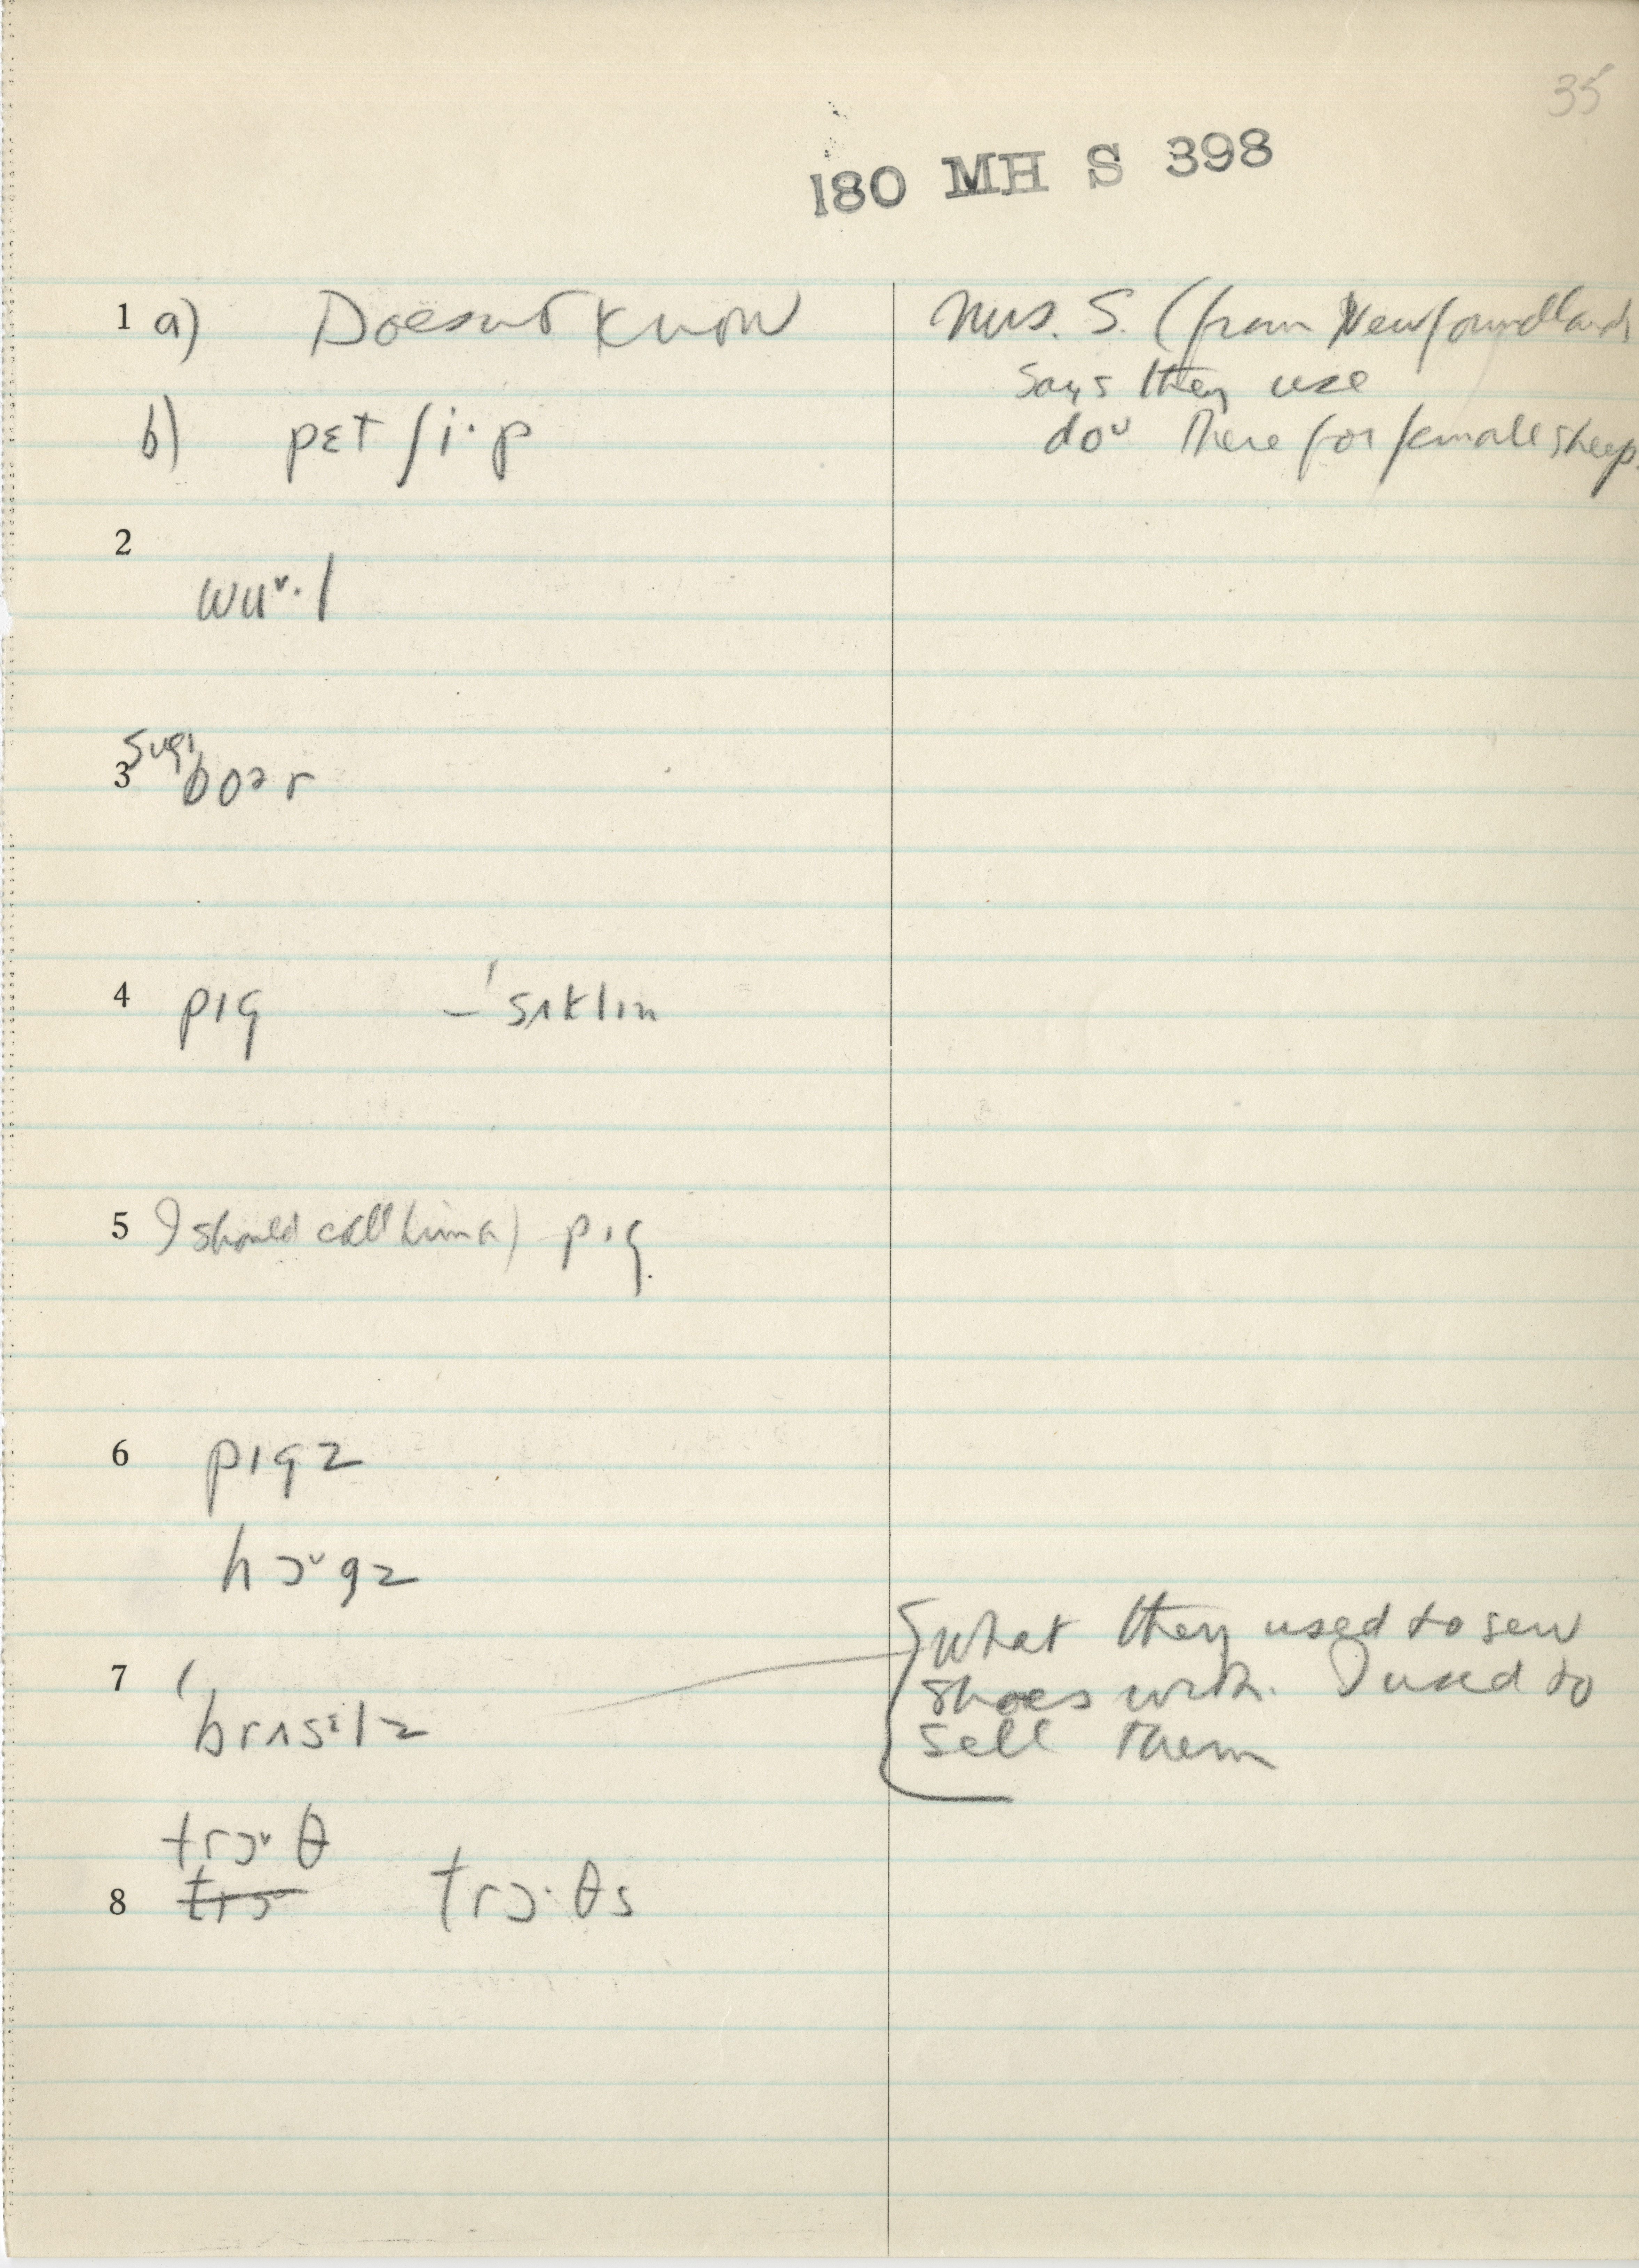 35
180 MH S 398
1 a) Doesnt know
Mrs. S. (from Newfoundland)
says they use
doᵕ there for female sheep.
b) pɛt ʃi·p
2
wuᵛ·l
Sug.
3 boər
4 pɪg – 'sʌklɪn
5 I should call him a) pɪg.
6 pɪgz
hɔᵛgz
7 'brʌsɪlz
what they used to sew
shoes with. I used to
sell them
trɔᵛθ
8 trɔ trɔ·θs